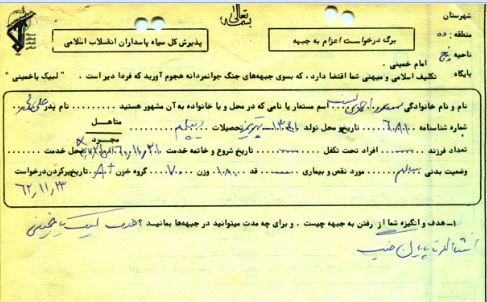 بسمه تعالی
شهرستان
منطقه : ده
ناحیه
پایگاه :
برگ درخواست اعزام به جبهه
پذیرش کل سپاه پاسداران انقلاب اسلامی
امام خمینی :
تکلیف اسلامی و میهنی شما اقتضا دارد ، که بسوی جبهه‌های جنگ جوانمردانه هجوم آورید که فردا دیر است . "لبیک یا خمینی"
نام و نام خانوادگی اسم مستعار یا نامی که در محل و یا خانواده به آن مشهور هستید نام پدر
شماره شناسنامه ۶۸۱ تاریخ و محل تولد تحصیلات دیپلم متاهل
مجرد
تعداد فرزند افراد تحت تکفل تاریخ شروع و خاتمه خدمت محل خدمت
وضعیت بدنی سالم مورد نقص و بیماری قد ۱۸۰ وزن ۷۰ گروه خون A+ تاریخ پر کردن درخواست
۶۲,۱۱,۲۳
۱- هدف و انگیزه شما از رفتن به جبهه چیست . و برای چه مدت میتوانید در جبهه‌ها بمانید ؟ هدف لبیک یا خمینی